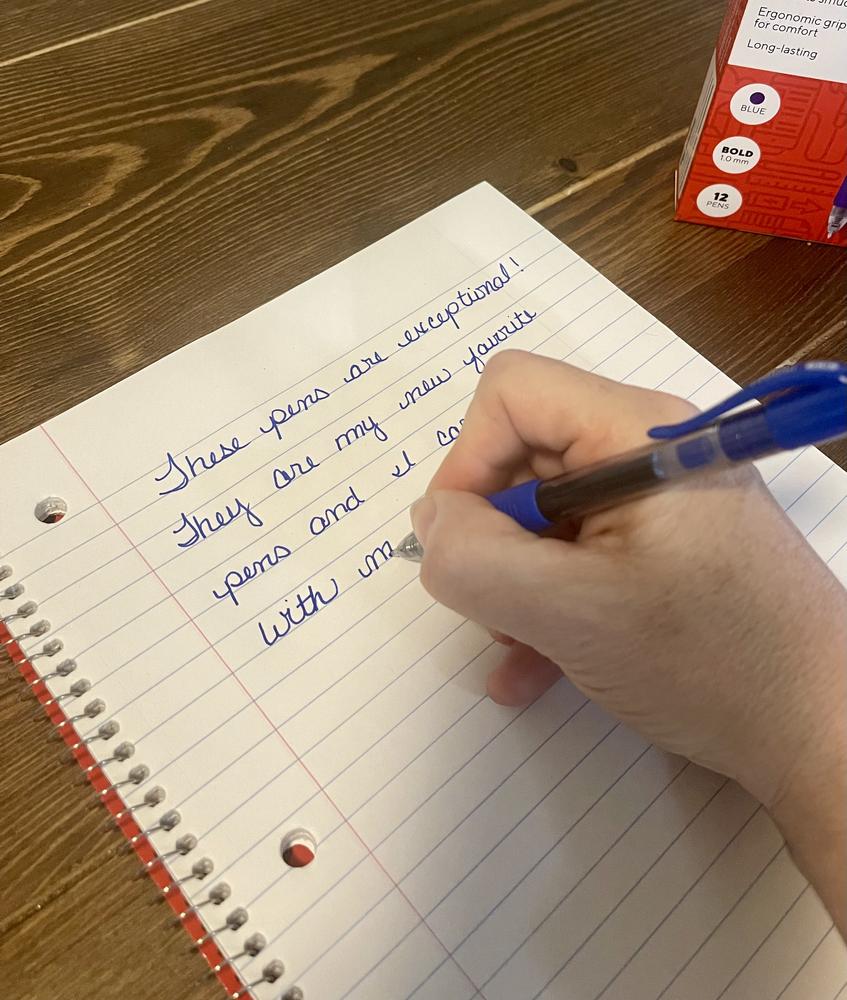 Ergonomic grip
for comfort
Long-lasting
BLUE
BOLD
1.0 mm
12
PENS
These pens are exceptional!
They are my new favorite
pens and I
with m